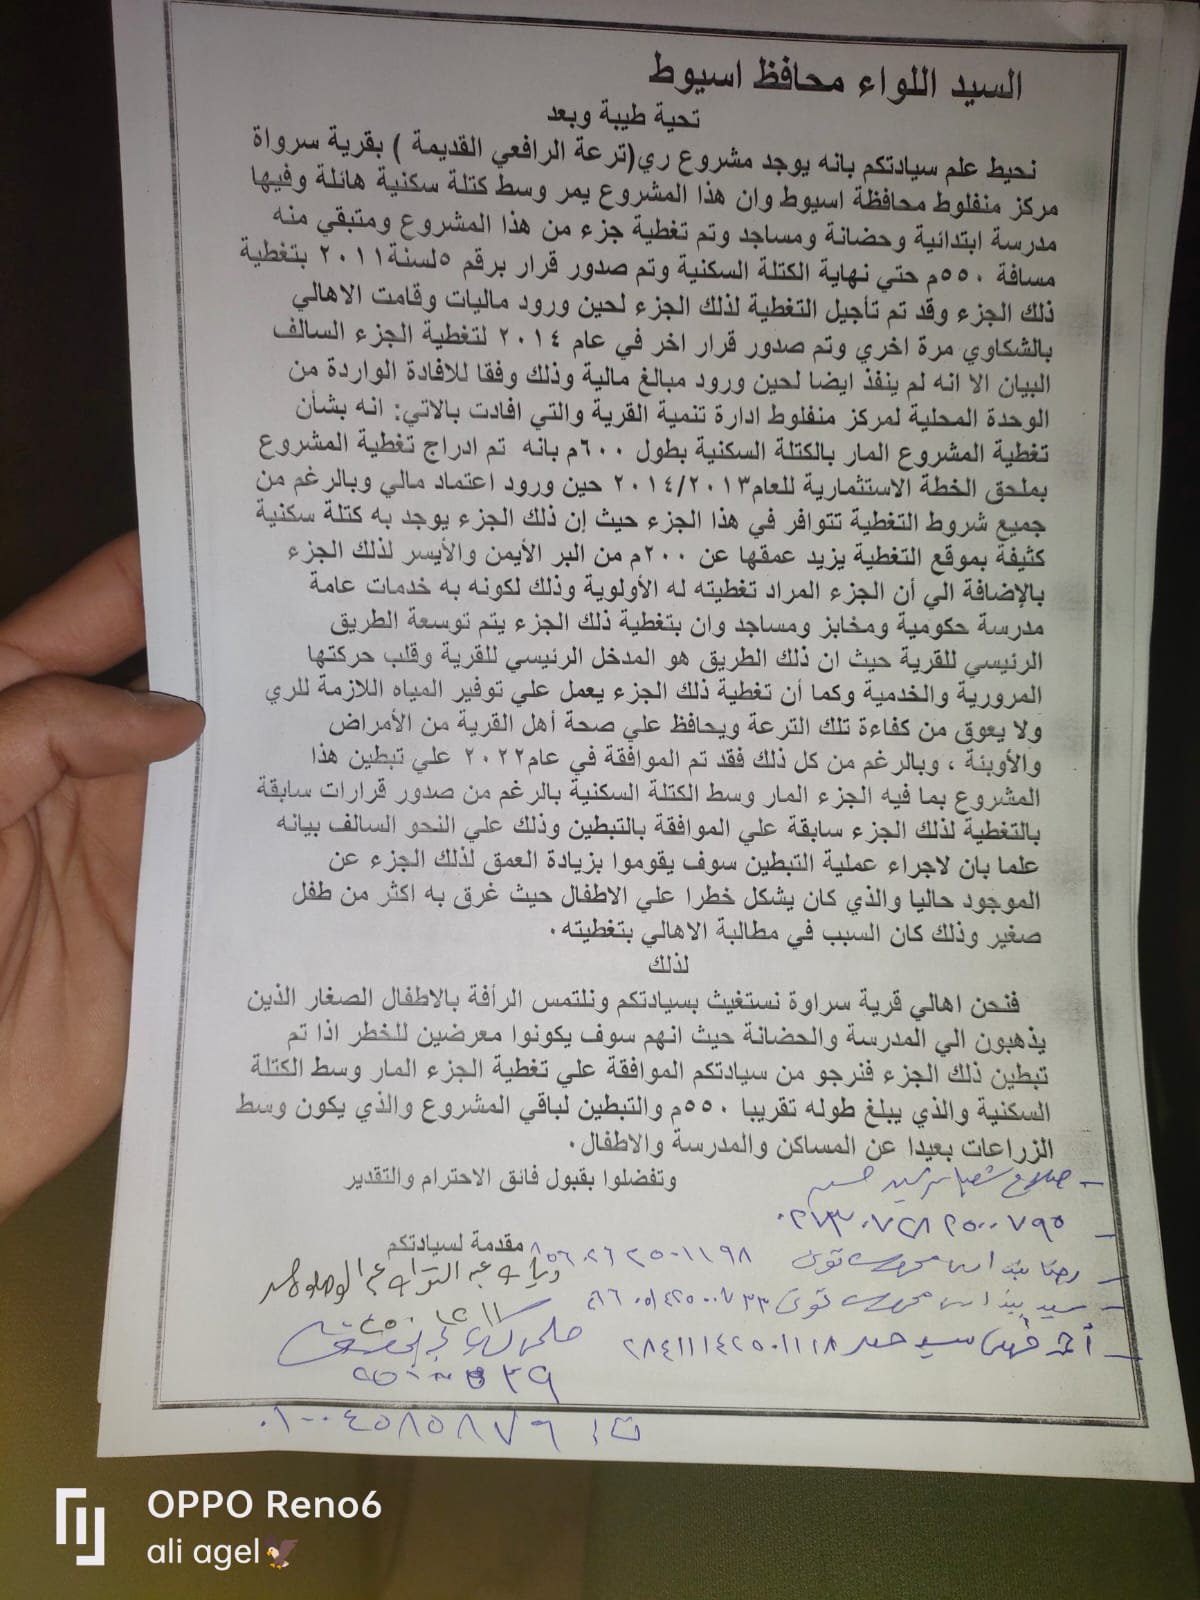 السيد اللواء محافظ اسيوط
تحية طيبة وبعد
نحيط علم سيادتكم بانه يوجد مشروع ري(ترعة الرافعي القديمة ) بقرية سرواة
مركز منفلوط محافظة اسيوط وان هذا المشروع يمر وسط كتلة سكنية هائلة وفيها
مدرسة ابتدائية وحضانة ومساجد وتم تغطية جزء من هذا المشروع ومتبقي منه
مسافة ٥٥٠م حتي نهاية الكتلة السكنية وتم صدور قرار برقم ٥لسنة٢٠١١ بتغطية
ذلك الجزء وقد تم تأجيل التغطية لذلك الجزء لحين ورود ماليات وقامت الاهالي
بالشكاوي مرة اخري وتم صدور قرار اخر في عام ٢٠١٤ لتغطية الجزء السالف
البيان الا انه لم ينفذ ايضا لحين ورود مبالغ مالية وذلك وفقا للافادة الواردة من
الوحدة المحلية لمركز منفلوط ادارة تنمية القرية والتي افادت بالاتي: انه بشأن
تغطية المشروع المار بالكتلة السكنية بطول ٦٠٠م بانه تم ادراج تغطية المشروع
بملحق الخطة الاستثمارية للعام٢٠١٤/٢٠١٣ حين ورود اعتماد مالي وبالرغم من
جميع شروط التغطية تتوافر في هذا الجزء حيث إن ذلك الجزء يوجد به كتلة سكنية
كثيفة بموقع التغطية يزيد عمقها عن ٢٠٠م من البر الأيمن والأيسر لذلك الجزء
بالإضافة الي أن الجزء المراد تغطيته له الأولوية وذلك لكونه به خدمات عامة
مدرسة حكومية ومخابز ومساجد وان بتغطية ذلك الجزء يتم توسعة الطريق
الرئيسي للقرية حيث ان ذلك الطريق هو المدخل الرئيسي للقرية وقلب حركتها
المرورية والخدمية وكما أن تغطية ذلك الجزء يعمل علي توفير المياه اللازمة للري
ولا يعوق من كفاءة تلك الترعة ويحافظ علي صحة أهل القرية من الأمراض
والأوبئة ، وبالرغم من كل ذلك فقد تم الموافقة في عام٢٠٢٢ علي تبطين هذا
المشروع بما فيه الجزء المار وسط الكتلة السكنية بالرغم من صدور قرارات سابقة
بالتغطية لذلك الجزء سابقة علي الموافقة بالتبطين وذلك علي النحو السالف بيانه
علما بان لاجراء عملية التبطين سوف يقوموا بزيادة العمق لذلك الجزء عن
الموجود حاليا والذي كان يشكل خطرا علي الاطفال حيث غرق به اكثر من طفل
صغير وذلك كان السبب في مطالبة الاهالي بتغطيته.
لذلك
فنحن اهالي قرية سراوة نستغيث بسيادتكم ونلتمس الرأفة بالاطفال الصغار الذين
يذهبون الي المدرسة والحضانة حيث انهم سوف يكونوا معرضين للخطر اذا تم
تبطين ذلك الجزء فنرجو من سيادتكم الموافقة علي تغطية الجزء المار وسط الكتلة
السكنية والذي يبلغ طوله تقريبا ٥٥٠م والتبطين لباقي المشروع والذي يكون وسط
الزراعات بعيدا عن المساكن والمدرسة والاطفال.
وتفضلوا بقبول فائق الاحترام والتقدير
مقدمة لسيادتكم
٢٨٤١١١٤٢٥٠١١١٨
OPPO Reno6
ali agel🦅